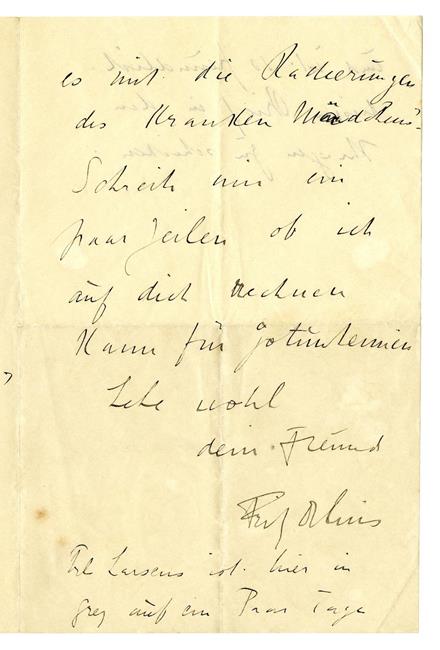 es mit die Radierungen
des Kranken Mädchens
Schreib nur ein
paar Zeilen ob ich
auf dich rechnen
Kann für
Lebe wohl
dein Freund
Frl Larsens ist hier in
auf ein Paar Tage